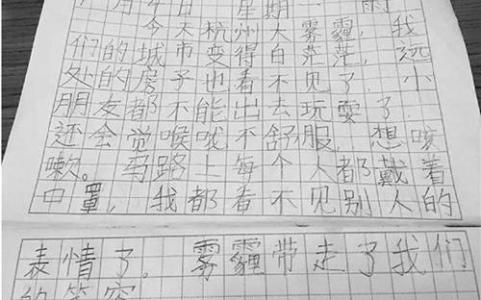 月 日 星期一 雨
今天杭州大雾霾,我
们的城市变得白茫茫,远
处的房子也看不见了,小
朋友都不能出去玩耍了.
还会觉喉咙不舒服,想咳
嗽。马路上每个人都戴着
口罩,我都看不见别人的
表情了。雾霾带走了我们
的笑容